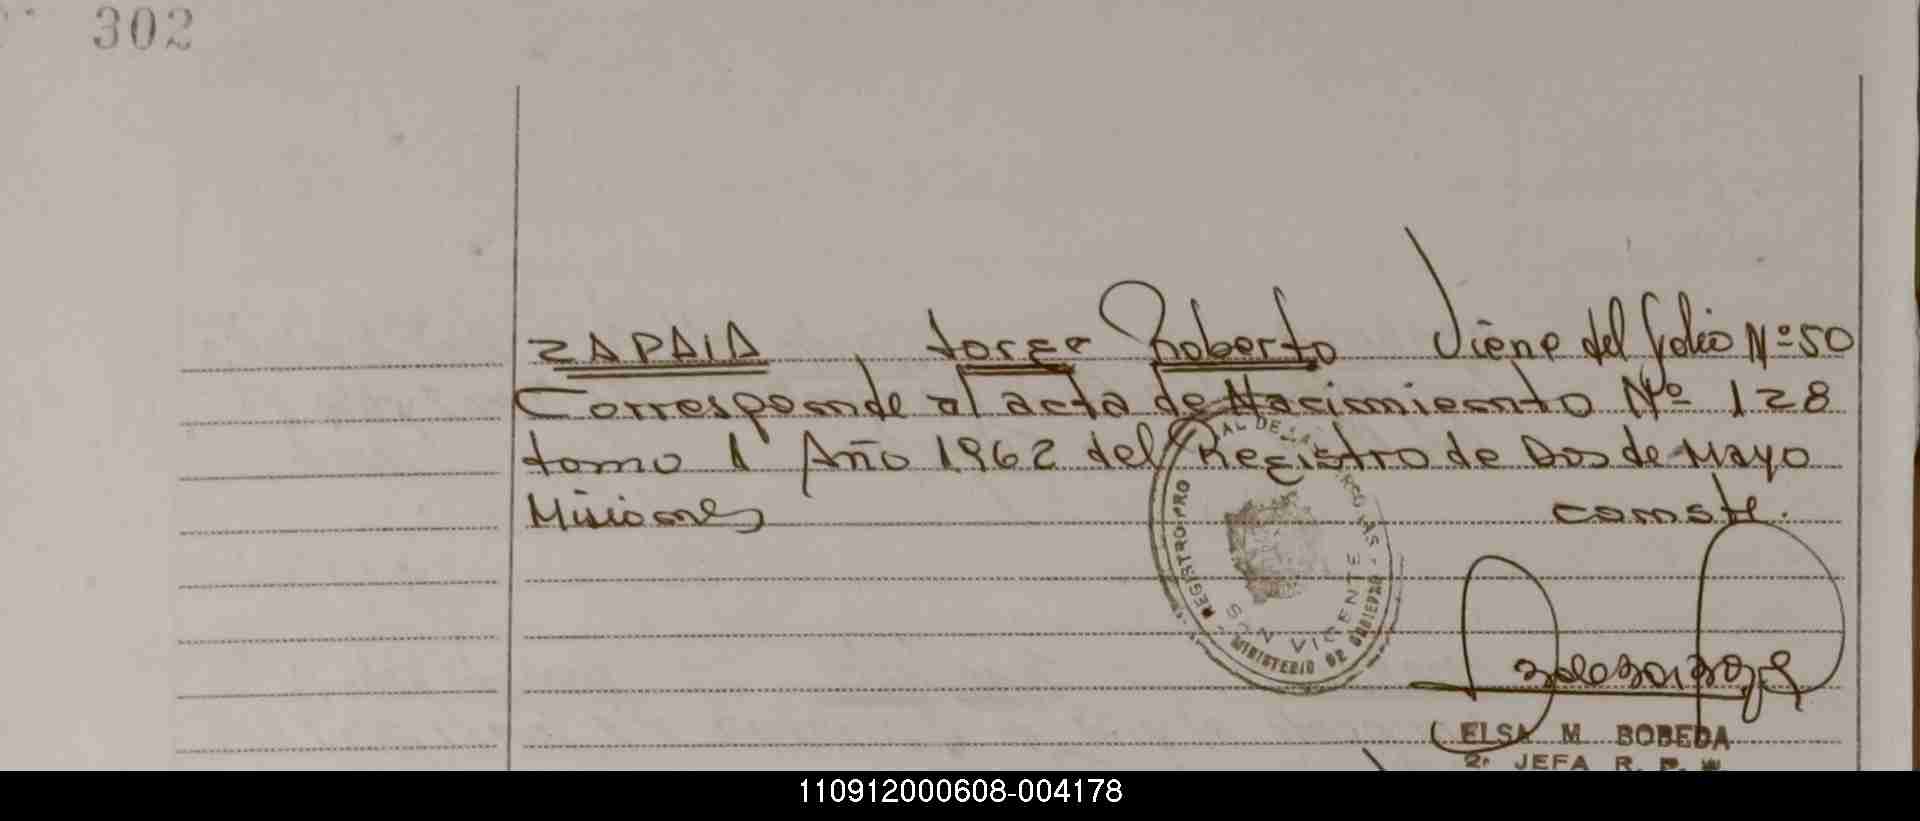 302
ZAPAIA, Jorge Roberto Viene del folio Nº 50
Corresponde al acta de Nacimiento Nº 128
tomo 1 Año 1962 del Registro de Dos de Mayo
Misiones conste.
REGISTRO PRO AL DE LAS PERSONAS
SAN VICENTE
MINISTERIO DE GOBIERNO
ELSA M BOBEDA
2ª JEFA R. P.
110912000608-004178